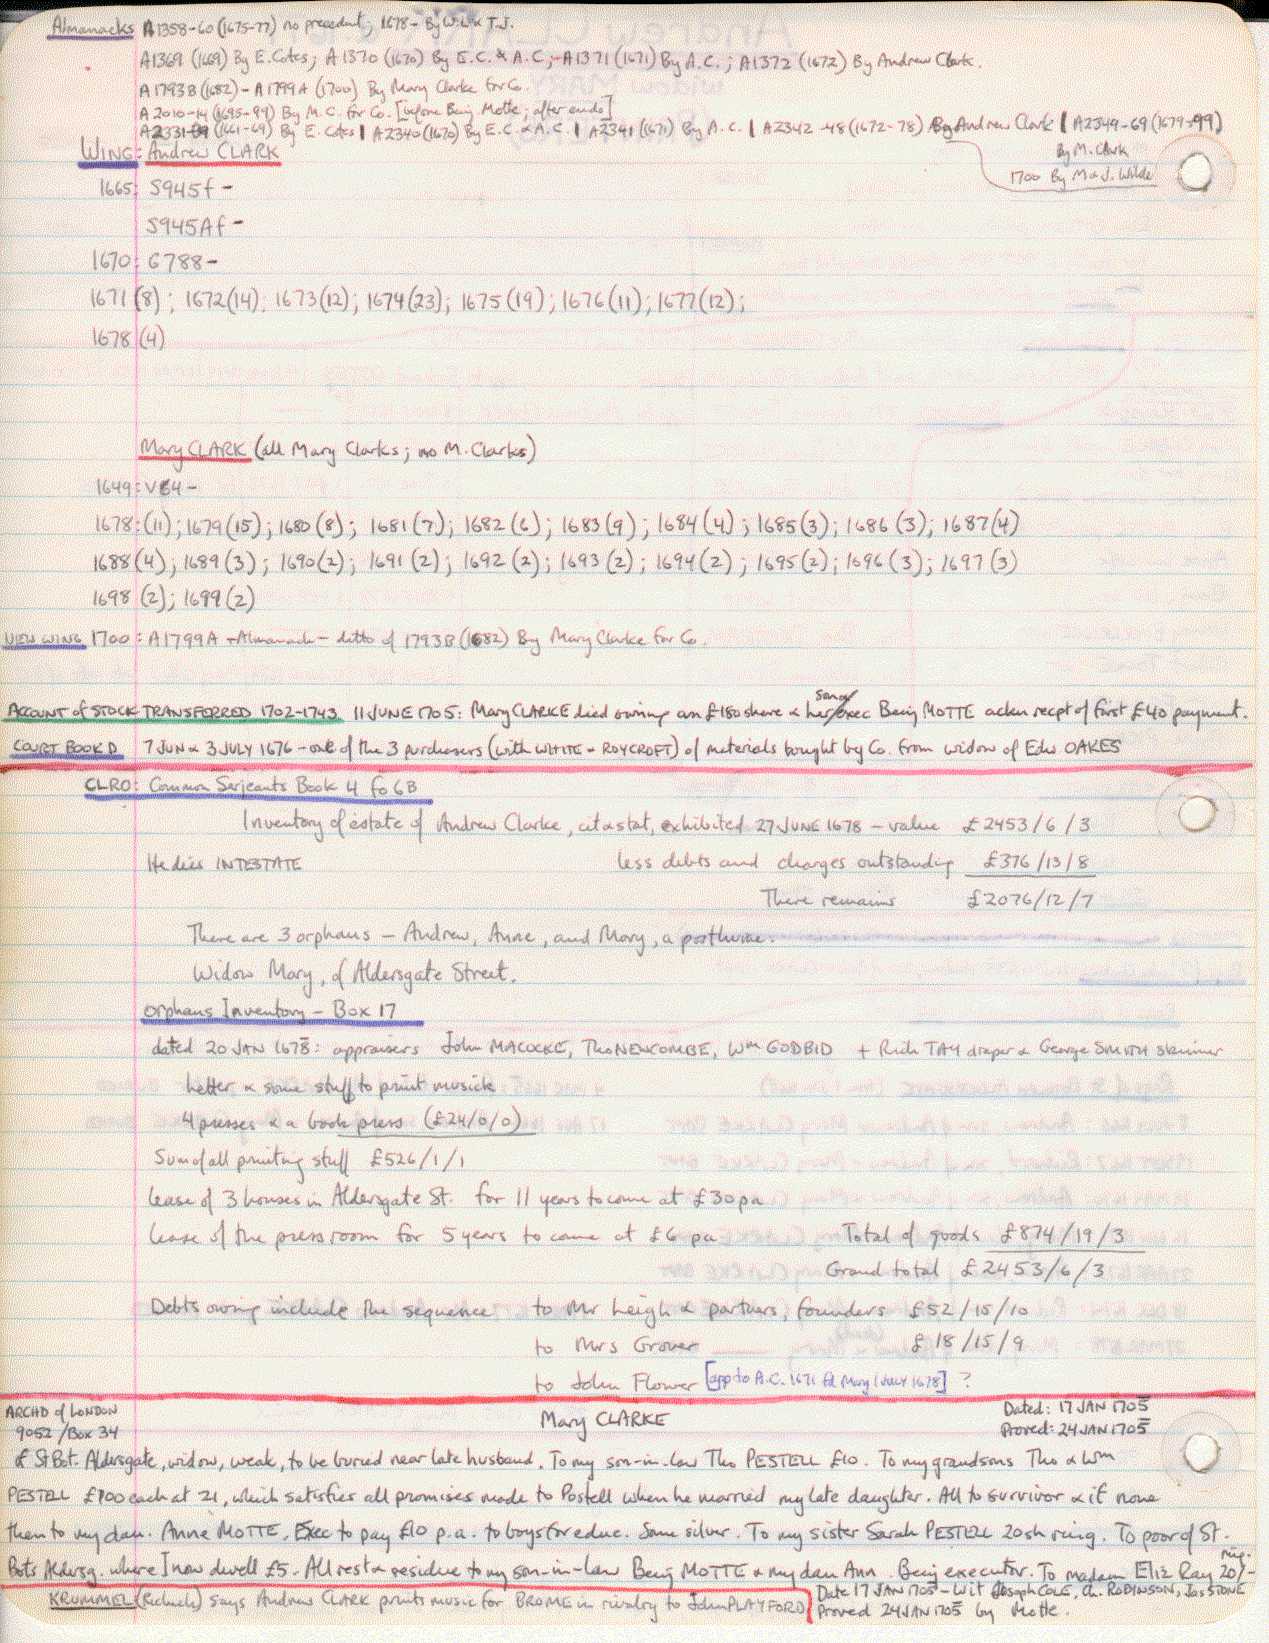 Almanacks A1358-60 (1675-77) no precedent; 1678- By W.L & T.J.
A1369 (1669) By E.Cotes; A1370 (1670) By E.C. & A.C.; A1371 (1671) By A.C.; A1372 (1672) By Andrew Clark.
A1793B (1682) - A1799A (1700) By Mary Clarke for Co.
A2010-14 (1695-99) By M.C. for Co. [before Benj. Motte; after ends]
A2331-39 (1661-69) By E. Cotes | A2340 (1670) By E.C. & A.C. | A2341 (1671) By A.C. | A2342-48 (1672-78) By Andrew Clark | A2349-69 (1679-99)
By M. Clark
1700 By M & J. Wilde
WING: Andrew CLARK
1665: S945f -
S945Af -
1670: G788 -
1671 (8); 1672 (14); 1673 (12); 1674 (23); 1675 (19); 1676 (11); 1677 (12);
1678 (4)
Mary CLARK (all Mary Clarks; no M. Clarks)
1649: V64 -
1678: (11); 1679 (15); 1680 (8); 1681 (7); 1682 (6); 1683 (9); 1684 (4); 1685 (3); 1686 (3); 1687 (4)
1688 (4); 1689 (3); 1690 (2); 1691 (2); 1692 (2); 1693 (2); 1694 (2); 1695 (2); 1696 (3); 1697 (3)
1698 (2); 1699 (2)
NEW WING 1700: A1799A - Almanack - ditto of 1793B (1682) By Mary Clarke for Co.
ACCOUNT of STOCK TRANSFERRED 1702-1743 11 JUNE 1705: Mary CLARKE died owning an £180 share & her son & exec Benj MOTTE ackn recpt of first £40 payment.
COURT BOOK D 7 JUN & 3 JULY 1676 - one of the 3 purchasers (with WHITE & ROYCROFT) of materials bought by Co. from widow of Edw. OAKES
CLRO: Common Serjeants Book 4 fo 6B
Inventory of estate of Andrew Clarke, cit & stat, exhibited 27 JUNE 1678 - value £2453/6/3
He dies INTESTATE less debts and charges outstanding £376/13/8
There remains £2076/12/7
There are 3 orphans - Andrew, Anne, and Mary, a posthume.
Widow Mary, of Aldersgate Street.
Orphans Inventory - Box 17
dated 20 JAN 1678: appraisers John MACOCKE, Tho NEWCOMBE, Wm GODBID + Rich TAY draper & George SMITH skinner
Letter & some stuff to print musick
4 presses & a book press (£24/0/0)
Sum of all printing stuff £526/1/1
Lease of 3 houses in Aldersgate St. for 11 years to come at £30 pa
Lease of the press room for 5 years to come at £6 pa Total of goods £874/19/3
Grand total £2453/6/3
Debts owing include the sequence to Mr Leigh & partners, founders £52/15/10
to Mrs Grover £18/15/9
to John Flower [app to A.C. 1671 fd Mary 1 July 1678] ?
ARCHD of LONDON Mary CLARKE Dated: 17 JAN 1705
9052/Box 34 Proved: 24 JAN 1705
of St Bot. Aldersgate, widow, weak, to be buried near late husband. To my son-in-law Tho PESTELL £10. To my grandsons Tho & Wm
PESTELL £100 each at 21, which satisfies all promises made to Postell when he married my late daughter. All to survivor & if none
then to my dau. Anne MOTTE. Exec to pay £10 p.a. to boys for educ. Some silver. To my sister Sarah PESTELL 20sh ring. To poor of St.
Bots Aldersg. where I now dwell £5. All rest & residue to my son-in-law Benj MOTTE & my dau Ann. Benj executor. To madam Eliz Ray 20/- ring.
KRUMMEL (Richush) says Andrew CLARK prints music for BROME in rivalry to John PLAYFORD
Date 17 JAN 1705 - Wit Joseph COLE, A. ROBINSON, Jas STONE
Proved 24 JAN 1705 by Motte.